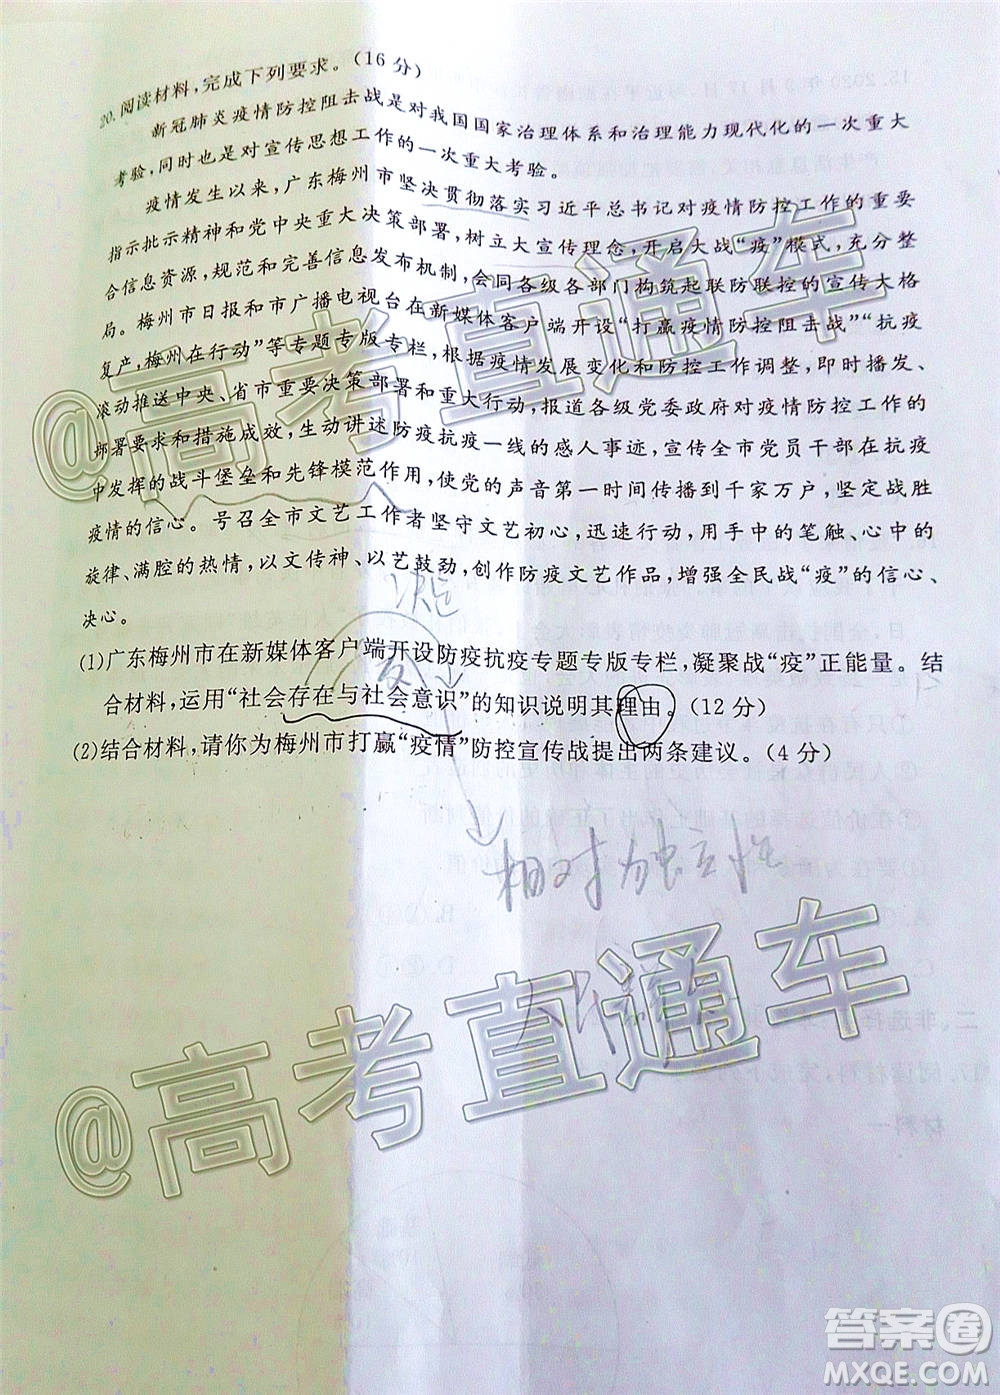 20. 阅读材料，完成下列要求。（16 分）
新冠肺炎疫情防控阻击战是对我国国家治理体系和治理能力现代化的一次重大
考验，同时也是对宣传思想工作的一次重大考验。
疫情发生以来，广东梅州市坚决贯彻落实习近平总书记对疫情防控工作的重要
指示批示精神和党中央重大决策部署，树立大宣传理念，开启大战“疫”模式，充分整
合信息资源，规范和完善信息发布机制，会同各级各部门构筑起联防联控的宣传大格
局。梅州市日报和市广播电视台在新媒体客户端开设“打赢疫情防控阻击战”“抗疫
复产，梅州在行动”等专题专版专栏，根据疫情发展变化和防控工作调整，即时播发、
滚动推送中央、省市重要决策部署和重大行动，报道各级党委政府对疫情防控工作的
部署要求和措施成效，生动讲述防疫抗疫一线的感人事迹，宣传全市党员干部在抗疫
中发挥的战斗堡垒和先锋模范作用，使党的声音第一时间传播到千家万户，坚定战胜
疫情的信心。号召全市文艺工作者坚守文艺初心，迅速行动，用手中的笔触、心中的
旋律、满腔的热情，以文传神、以艺鼓劲，创作防疫文艺作品，增强全民战“疫”的信心、
决心。
决定
反
(1)广东梅州市在新媒体客户端开设防疫抗疫专题专版专栏，凝聚战“疫”正能量。结
合材料，运用“社会存在与社会意识”的知识说明其理由。（12 分）
(2)结合材料，请你为梅州市打赢“疫情”防控宣传战提出两条建议。（4 分）
相对独立性
@高考直通车
@高考直通车
答案圈
MXQE.COM